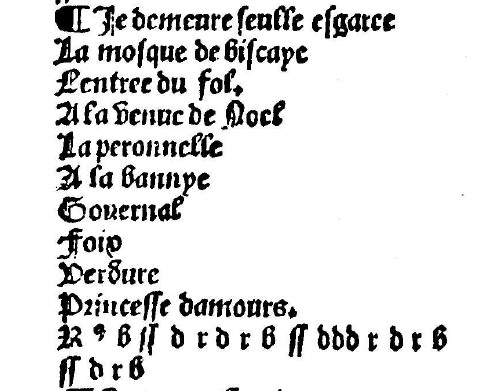 ¶ Je demeure ſeulle eſgaree
La moſque de biſcaye
Lentree du fol.
A la venue de Noel
La peronnelle
A la bannye
Gouernal
Foix
Verdure
Princeſſe damours.
R 9 b ſſ d r d r b ſſ ddd r d r b
ſſ d r b